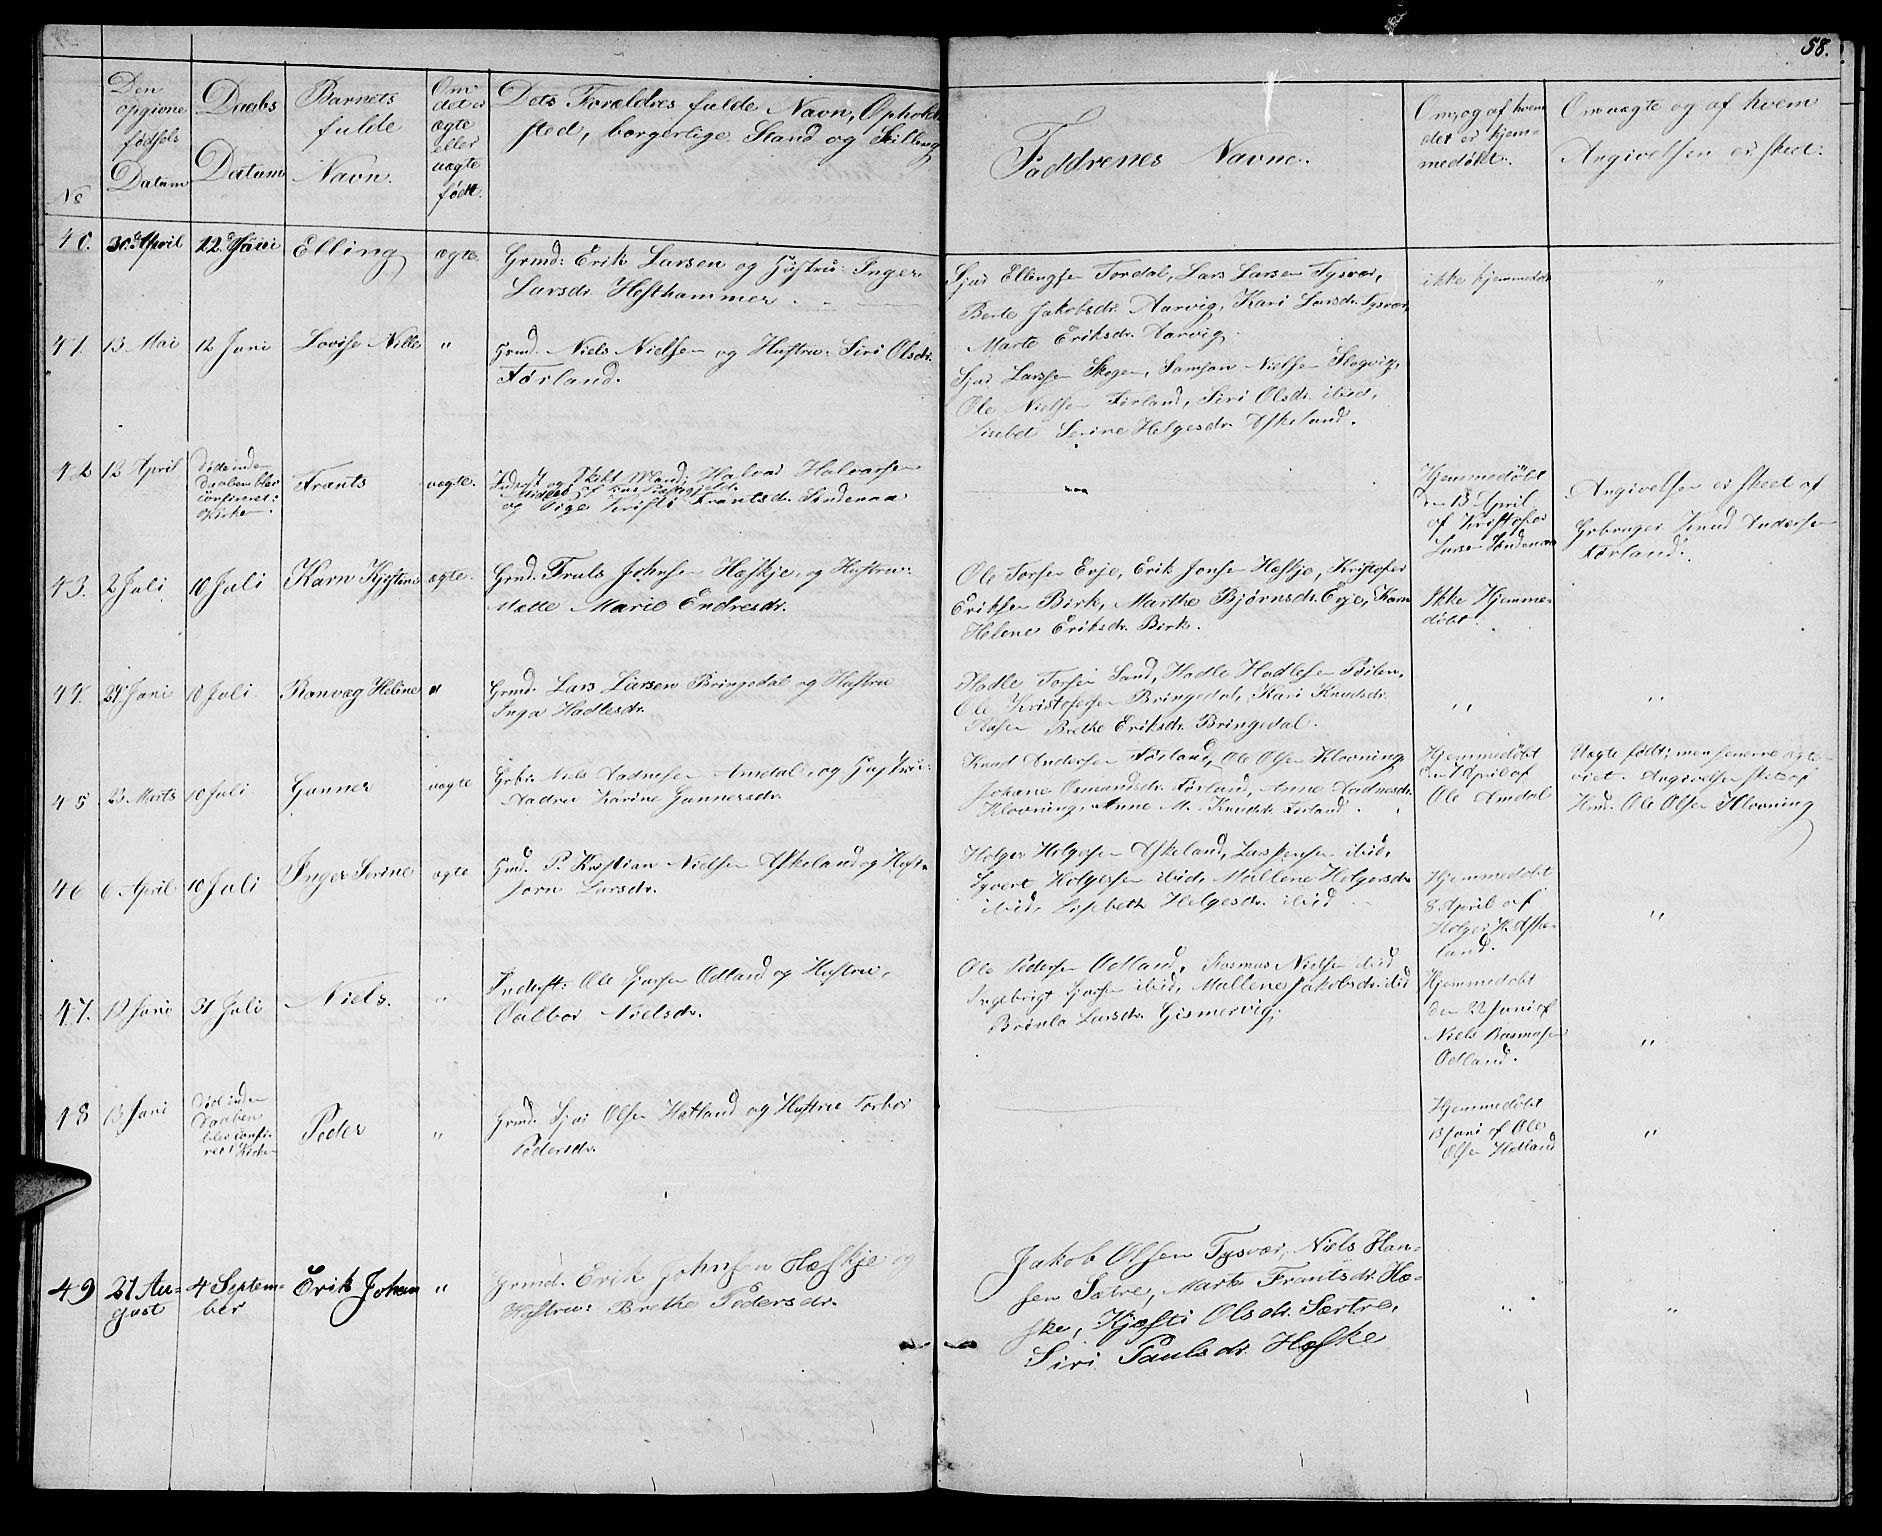 58.
No
Den opgivne fødsels Datum
Daabs Datum
Barnets fulde Navn.
Om det er ægte eller uægte født.
Dets Forældres fulde Navn, Opholds
sted, borgerlige Stand og Stilling
Faddrenes Navne.
Om, og af hvem det er hjem-
medøbt.
Om uægte og af hvem
Angivelsen er skeet.
40. 30. April 12. Juni Elling ægte.
Grmd: Erik Larsen og Hustru: Inger
Larsdr. Hesthammer.
Sjur Ellingsen Fordal, Lars Larsen Tysvær,
Berte Jakobsdr. Aarvig, Kari Larsdr. Tysvær,
Marte Eriksdr. Aarvig.
ikke hjemmedøbt "
41. 13 Mai 12 Juni Lovise Nille "
Grmd. Niels Nielsen og Hustru: Siri Olsdr.
Førland.
Sjur Larsen Skogen, Samson Nielsen Slogvig,
Ole Nielsen Førland, Siri Olsdr. ibid,
Lisebet Serine Helgesdr. Askeland.
42 12 April
Død inden
Daaben blev
confireret i
Kirken.
Frants uægte.
Inderst og Skibs Mand; Halvar Halvorsen
og Pige Kristi Frantsdr. Søndenaa
Hjemmedøbt
den 13 April
af Kristofer
Larsen Søndenaa
Angivelsen er skeet af
Gbruger Knud Andersen
Førland.
43. 2 Juli 10 Juli Karn Kjistine ægte.
Grmd. Truls Johnsen Hæskje og Hustru:
Mette Marie Endresdr.
Ole Torsen Erje, Erik Jonsen Hæskje, Kristofer
Eriksen Birk, Marthe Bjørnsdr. Erje, Karn
Helene Eriksdr. Birk.
Ikke Hjemme-
døbt.
44. 24 Juni 10 Juli. Ranvæg Heline "
Grmd. Lars Larsen Bringedal og Hustru
Inga Hadlesdr.
Hadle Torsen Sand, Hadle Hadlesen
Ole Kristofersen Bringedal, Kari Knudsdr.
Brethe Eriksdr. Bringedal.
" "
45 23 Marts 10 Juli. Gunner uægte
Gbr: Nils Aadnesen Amdal, og Hustru:
Aadne Karine Gunnersdr.
Knud Andersen Førland, Ole Olsen Kloвning
Johane Osmundsdr. Førland, Anne Aadnesdr.
Klovning, Anne M. Knudsdr. Førland.
Hjemmedøbt
den 1 April af
Ole Amdal
Uægte født; men senerne ægte-
viet. Angivelsen skeet af
Hmd. Ole Olsen Klovning
46 6 April 10 Juli Inger Serine ægte
Gmd. P. Kristian Nielsen Askeland og Hustr.
Jorn Larsdr.
Holger Holgersen Askeland, Lars Jensen ibid,
Syvert Holgersen ibid, Mallene Holgersdr.
ibid, Lisebeth Helgesdr. ibid
Hjemmedøbt
8. April af
Holger H. Aske-
land. "
47. 12 Juni 31 Juli Niels. "
Inderst: Ole Sjursen Odland og Hustru,
Valbor Nielsdr.
Ole Pedersen Odland, Rasmus Nielsen ibid
Ingebrigt Sjursen ibid, Mallene Jakobsdr. ibid
Brønla Larsdr. Gismervig.
Hjemmedøbt
den 22 Juni af
Niels Rasmusen
Odland. "
48 13 Juni
Død inden
Daaben
blev confi-
rert i Kirken
Peder "
Grmd. Sjur Olsen Hatland og Hustru Torbor
Pedersdr.
Hjemmedøbt
13 Juni af Ole
Olsen Hetland "
49 27 Au-
gust
4 Septem-
ber
Erik Johan "
Grmd. Erik Johnsen Hæskje og
Hustru: Brethe Pedersdr.
Jakob Olsen Tysvær, Niels Han-
sen Sætre, Marte Frantsdr. Hæ-
ske, Kjæsti Olsdr. Særtre,
Siri Paulsdr. Hæske
" "